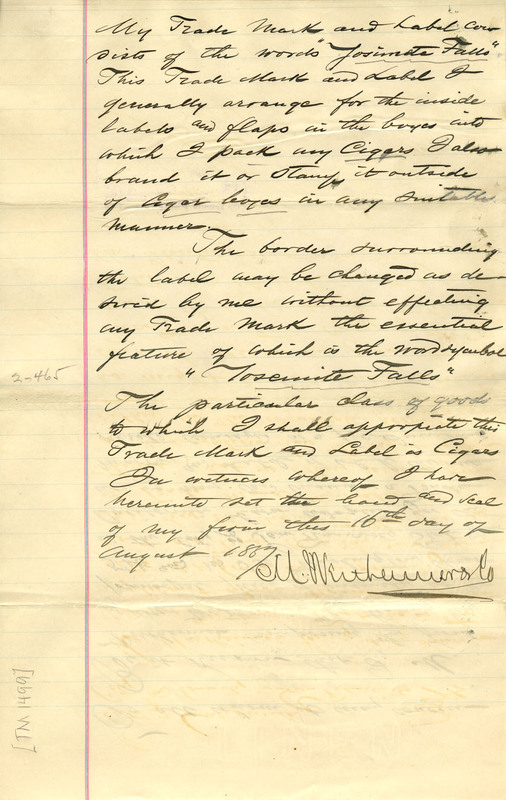 My Trade Mark and Label Con
sists of the words "Yosimite Falls"
This Trade Mark and Label I
generally arrange for the inside
labels and flaps in the boxes into
which I pack my Cigars I also
brand it or Stamp it outside
of Cigar boxes in any suitable
manner.
The border surrounding
the label may be changed as de
sired by me without effecting
my Trade Mark the essential
feature of which is the word symbol
2-465
"Yosemite Falls"
The particular class of goods
to which I shall appropriate this
Trade Mark and Label is Cigars
In witness whereof I have
hereunto set the hand and seal
of my firm this 16th day of
August 1887
M. Wertheimer & Co
[TM 1499]